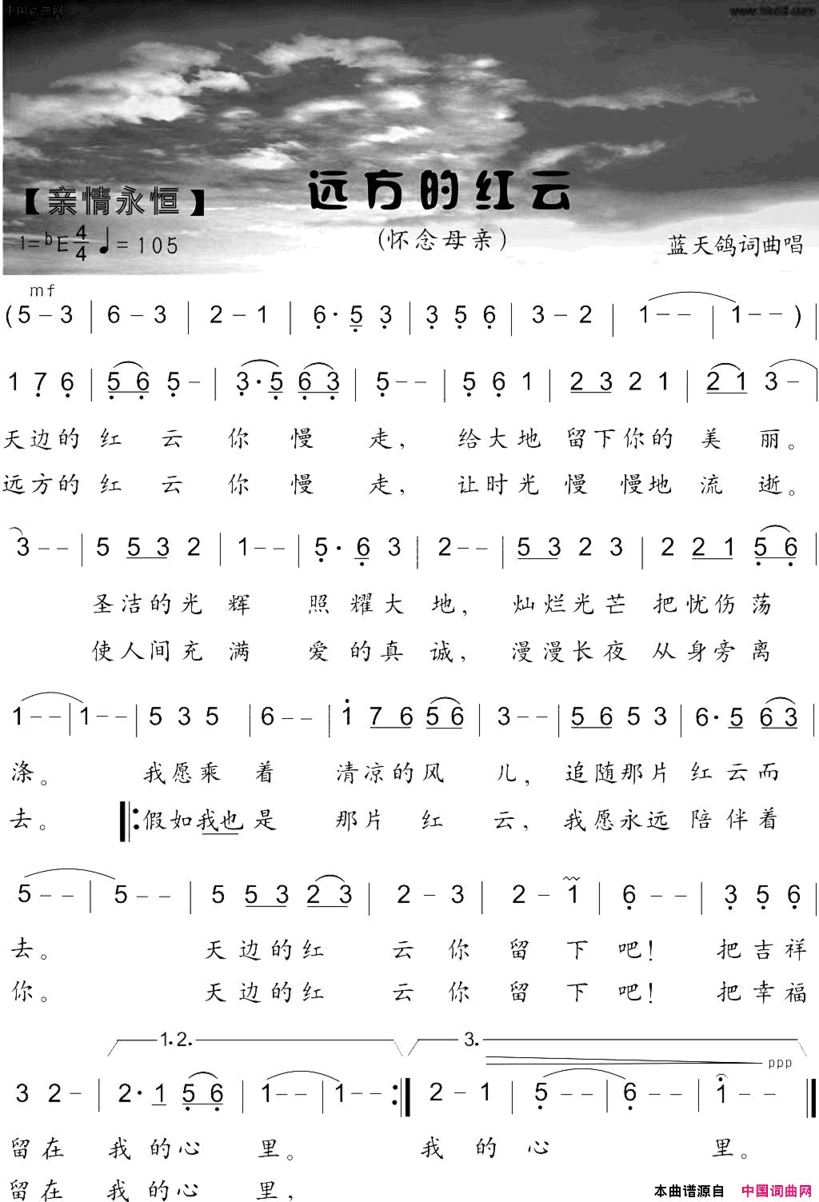 中国词曲网
【亲情永恒】
远方的红云
1=ᵇE 4/4 ♩=105
(怀念母亲)
蓝天鸽词曲唱
mf
(5 – 3 | 6 – 3 | 2 – 1 | 6· 5 3 | 3 5 6 | 3 – 2 | 1 – – | 1 – – ) |
1 7 6 | 5 6 5 – | 3· 5 6 3 | 5 – – | 5 6 1 | 2 3 2 1 | 2 1 3 – |
天边的 红 云 你 慢 走, 给大地 留下你的 美 丽。
远方的 红 云 你 慢 走, 让时光 慢 慢地 流 逝。
3 – – | 5 5 3 2 | 1 – – | 5· 6 3 | 2 – – | 5 3 2 3 | 2 2 1 5 6 |
圣洁的光 辉 照 耀大 地, 灿烂光芒 把忧伤荡
使人间充 满 爱 的真 诚, 漫漫长夜 从身旁离
1 – – | 1 – – | 5 3 5 | 6 – – | i 7 6 5 6 | 3 – – | 5 6 5 3 | 6· 5 6 3 |
涤。 我愿乘 着 清凉的风 儿, 追随那片 红云而
去。 ‖:假如我也是 那片 红 云, 我愿永远 陪伴着
5 – – | 5 – – | 5 5 3 2 3 | 2 – 3 | 2 – 1 | 6 – – | 3 5 6 |
去。 天边的红 云 你 留 下 吧! 把吉祥
你。 天边的红 云 你 留 下 吧! 把幸福
1.2. 3.
ppp
3 2 – | 2· 1 5 6 | 1 – – | 1 – – :‖ 2 – 1 | 5 – – | 6 – – | i – – ‖
留在 我 的心 里。 我 的 心 里。
留在 我 的心 里,
本曲谱源自 中国词曲网